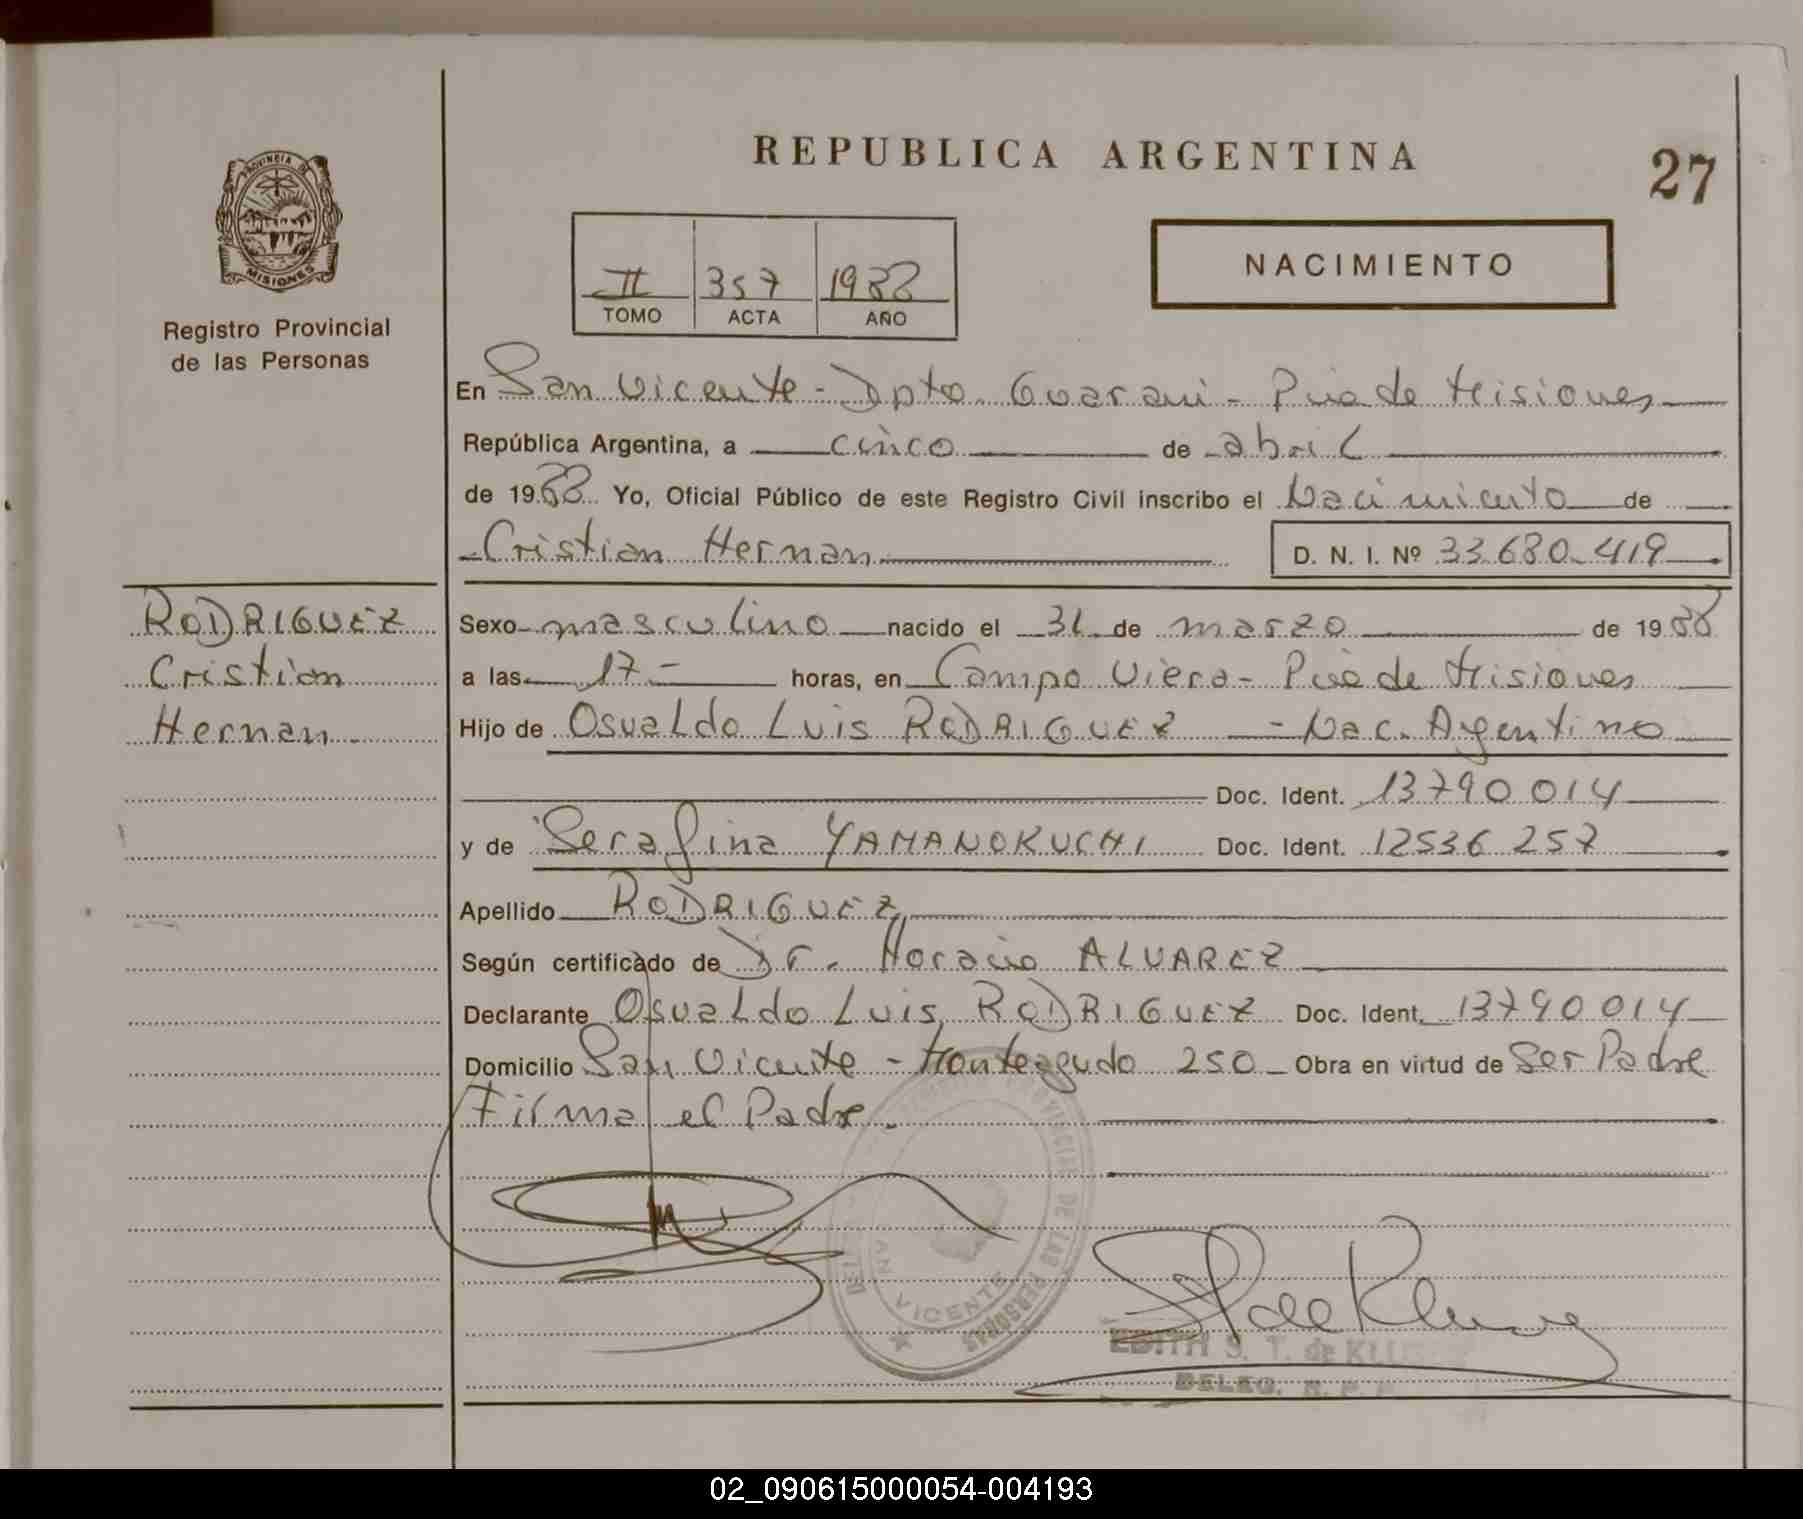 PROVINCIA DE
MISIONES
Registro Provincial
de las Personas
REPUBLICA ARGENTINA
27
II 357 1988
TOMO ACTA AÑO
NACIMIENTO
En San Vicente - Dpto. Guarani - Pcia de Misiones
República Argentina, a cinco de abril
de 1988 Yo, Oficial Público de este Registro Civil inscribo el Nacimiento de
Cristian Hernan D. N. I. Nº 33.680.419
RODRIGUEZ
Cristian
Hernan
Sexo masculino nacido el 31 de marzo de 1988
a las 17 - horas, en Campo Viera - Pcia de Misiones
Hijo de Osvaldo Luis RODRIGUEZ - Nac. Argentino
Doc. Ident. 13790014
y de Serafina YAMANOKUCHI Doc. Ident. 12536257
Apellido RODRIGUEZ
Según certificado de Dr. Horacio ALVAREZ
Declarante Osvaldo Luis RODRIGUEZ Doc. Ident. 13790014
Domicilio San Vicente - Monteagudo 250 - Obra en virtud de Ser Padre
Firma el Padre.
PROVINCIAL DE LAS PERSONAS
VICENTE
EDITH S. T. de
DELEG. R. P. P.
02_090615000054-004193